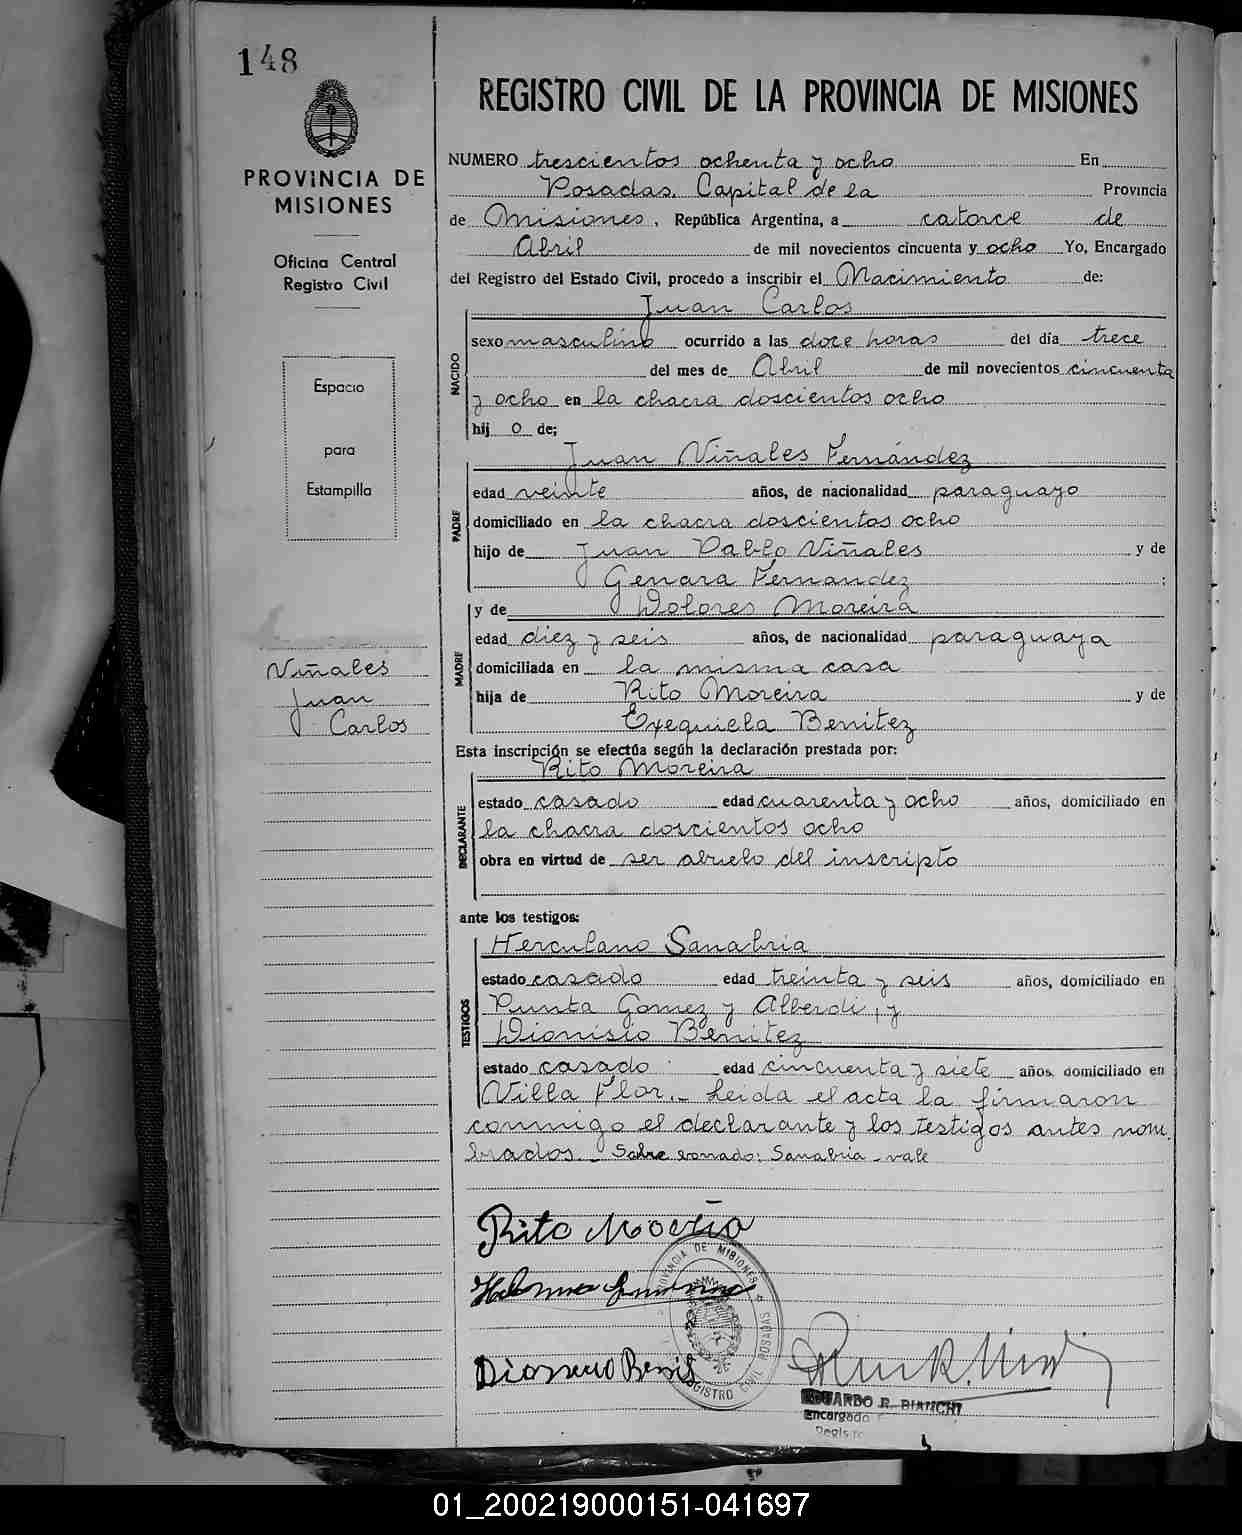 148
PROVINCIA DE
MISIONES
Oficina Central
Registro Civil
Espacio
para
Estampilla
Viñales
Juan
Carlos
REGISTRO CIVIL DE LA PROVINCIA DE MISIONES
NUMERO trescientos ochenta y ocho En
Posadas, Capital de la Provincia
de Misiones, República Argentina, a catorce de
Abril de mil novecientos cincuenta y ocho Yo, Encargado
del Registro del Estado Civil, procedo a inscribir el Nacimiento de:
Juan Carlos
NACIDO
sexo masculino ocurrido a las doce horas del día trece
del mes de Abril de mil novecientos cincuenta
y ocho en la chacra doscientos ocho
hij o de;
Juan Viñales Fernández
PADRE
edad veinte años, de nacionalidad paraguayo
domiciliado en la chacra doscientos ocho
hijo de Juan Pablo Viñales y de
Genara Fernandez ;
y de Dolores Moreira
MADRE
edad diez y seis años, de nacionalidad paraguaya
domiciliada en la misma casa
hija de Rito Moreira y de
Exequiela Benitez
Esta inscripción se efectúa según la declaración prestada por:
Rito Moreira
DECLARANTE
estado casado edad cuarenta y ocho años, domiciliado en
la chacra doscientos ocho
obra en virtud de ser abuelo del inscripto
ante los testigos:
Herculano Sanabria
TESTIGOS
estado casado edad treinta y seis años, domiciliado en
Punta Gomez y Alberdi, y
Dionisio Benitez
estado casado edad cincuenta y siete años, domiciliado en
Villa Flor.- Leida el acta la firmaron
conmigo el declarante y los testigos antes nom
brados.- Sobre borrado: Sanabria - vale
Rito
PROVINCIA DE MISIONES
POSADAS
REGISTRO CIVIL
EDUARDO R. BIANCHI
Encargado
01_200219000151-041697